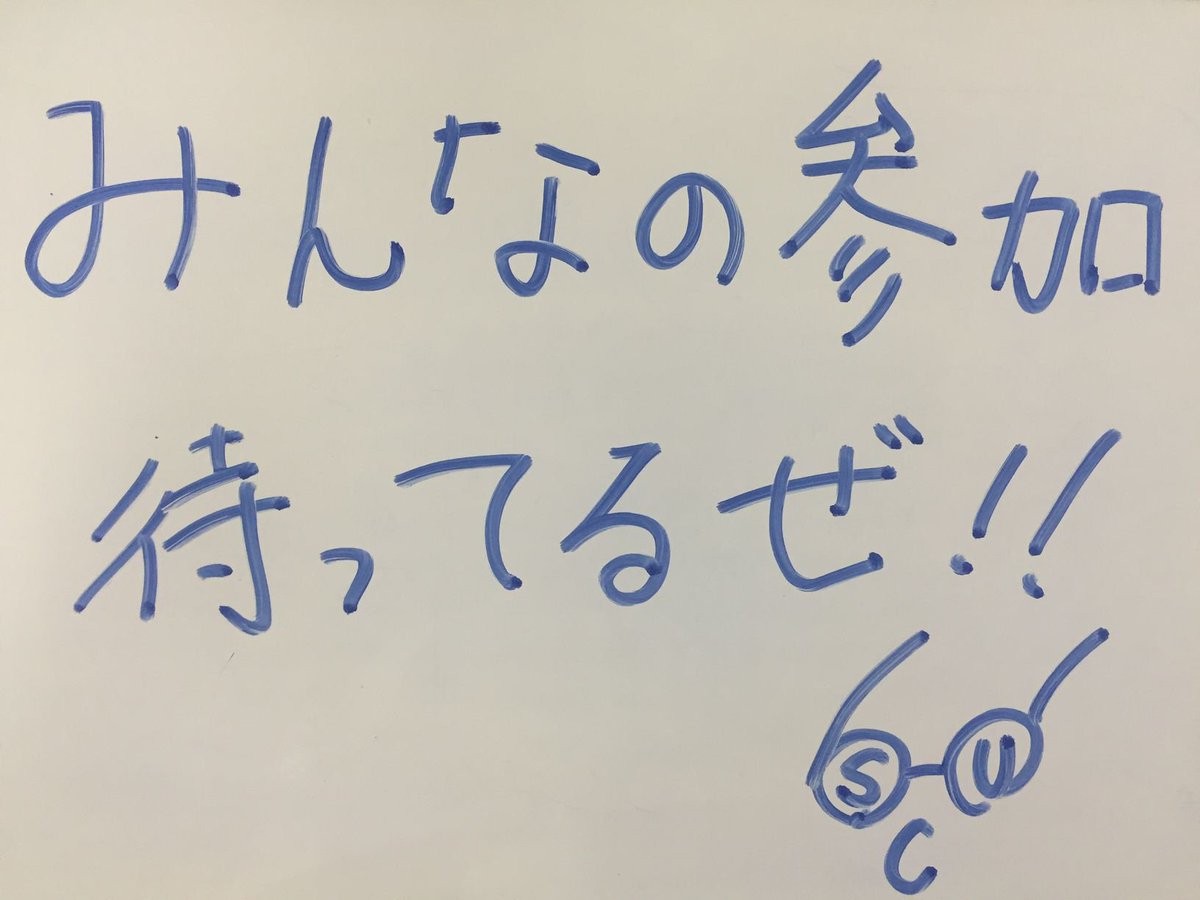 みんなの参加
待ってるぜ!!
S U
C